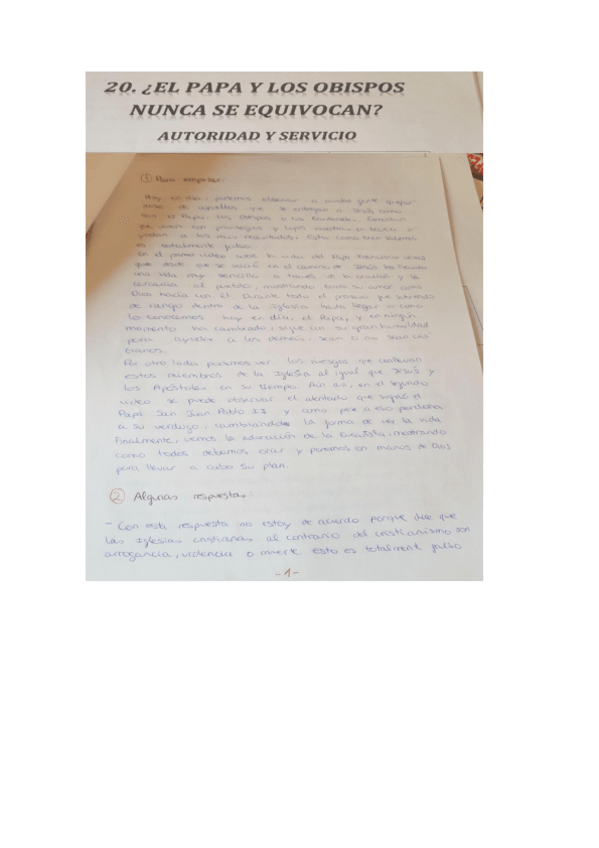 20. ¿EL PAPA Y LOS OBISPOS
NUNCA SE EQUIVOCAN?
AUTORIDAD Y SERVICIO
① Para empezar:
Hoy en día, podemos observar a mucha gente
de aquellos que se entregan a Jesús como
son el Papa, los obispos o los
que viven con privilegios y lujos
a los más necesitados. Esto como bien sabemos
es totalmente falso.
En el primer vídeo sobre la vida del Papa Francisco vemos
que desde que se inició en el camino de Jesús ha llevado
una vida muy sencilla a través de la oración y la
cercanía al pueblo, mostrando todo su amor como
Dios hacía con él. Durante todo el proceso que
de rango dentro de la Iglesia hasta llegar a como
lo conocemos hoy en día, el Papa, y en ningún
momento ha cambiado, sigue con su gran humildad
para ayudar a los demás, sean o no sean
Por otro lado, podemos ver los riesgos que conllevan
estos miembros de la Iglesia al igual que Jesús y
los Apóstoles en su tiempo. Aún así, en el segundo
vídeo se puede observar el atentado que sufrió el
Papa San Juan Pablo II y como pese a eso perdona
a su verdugo, cambiándole la forma de ver la vida.
Finalmente, vemos la adoración de la Eucaristía, mostrando
como todos debemos orar y ponernos en manos de Dios
para llevar a cabo su plan.
② Algunas respuestas:
- Con esta respuesta no estoy de acuerdo porque dice que
las Iglesias cristianas al contrario del cristianismo son
arrogancia, violencia o muerte esto es totalmente falso
-1-